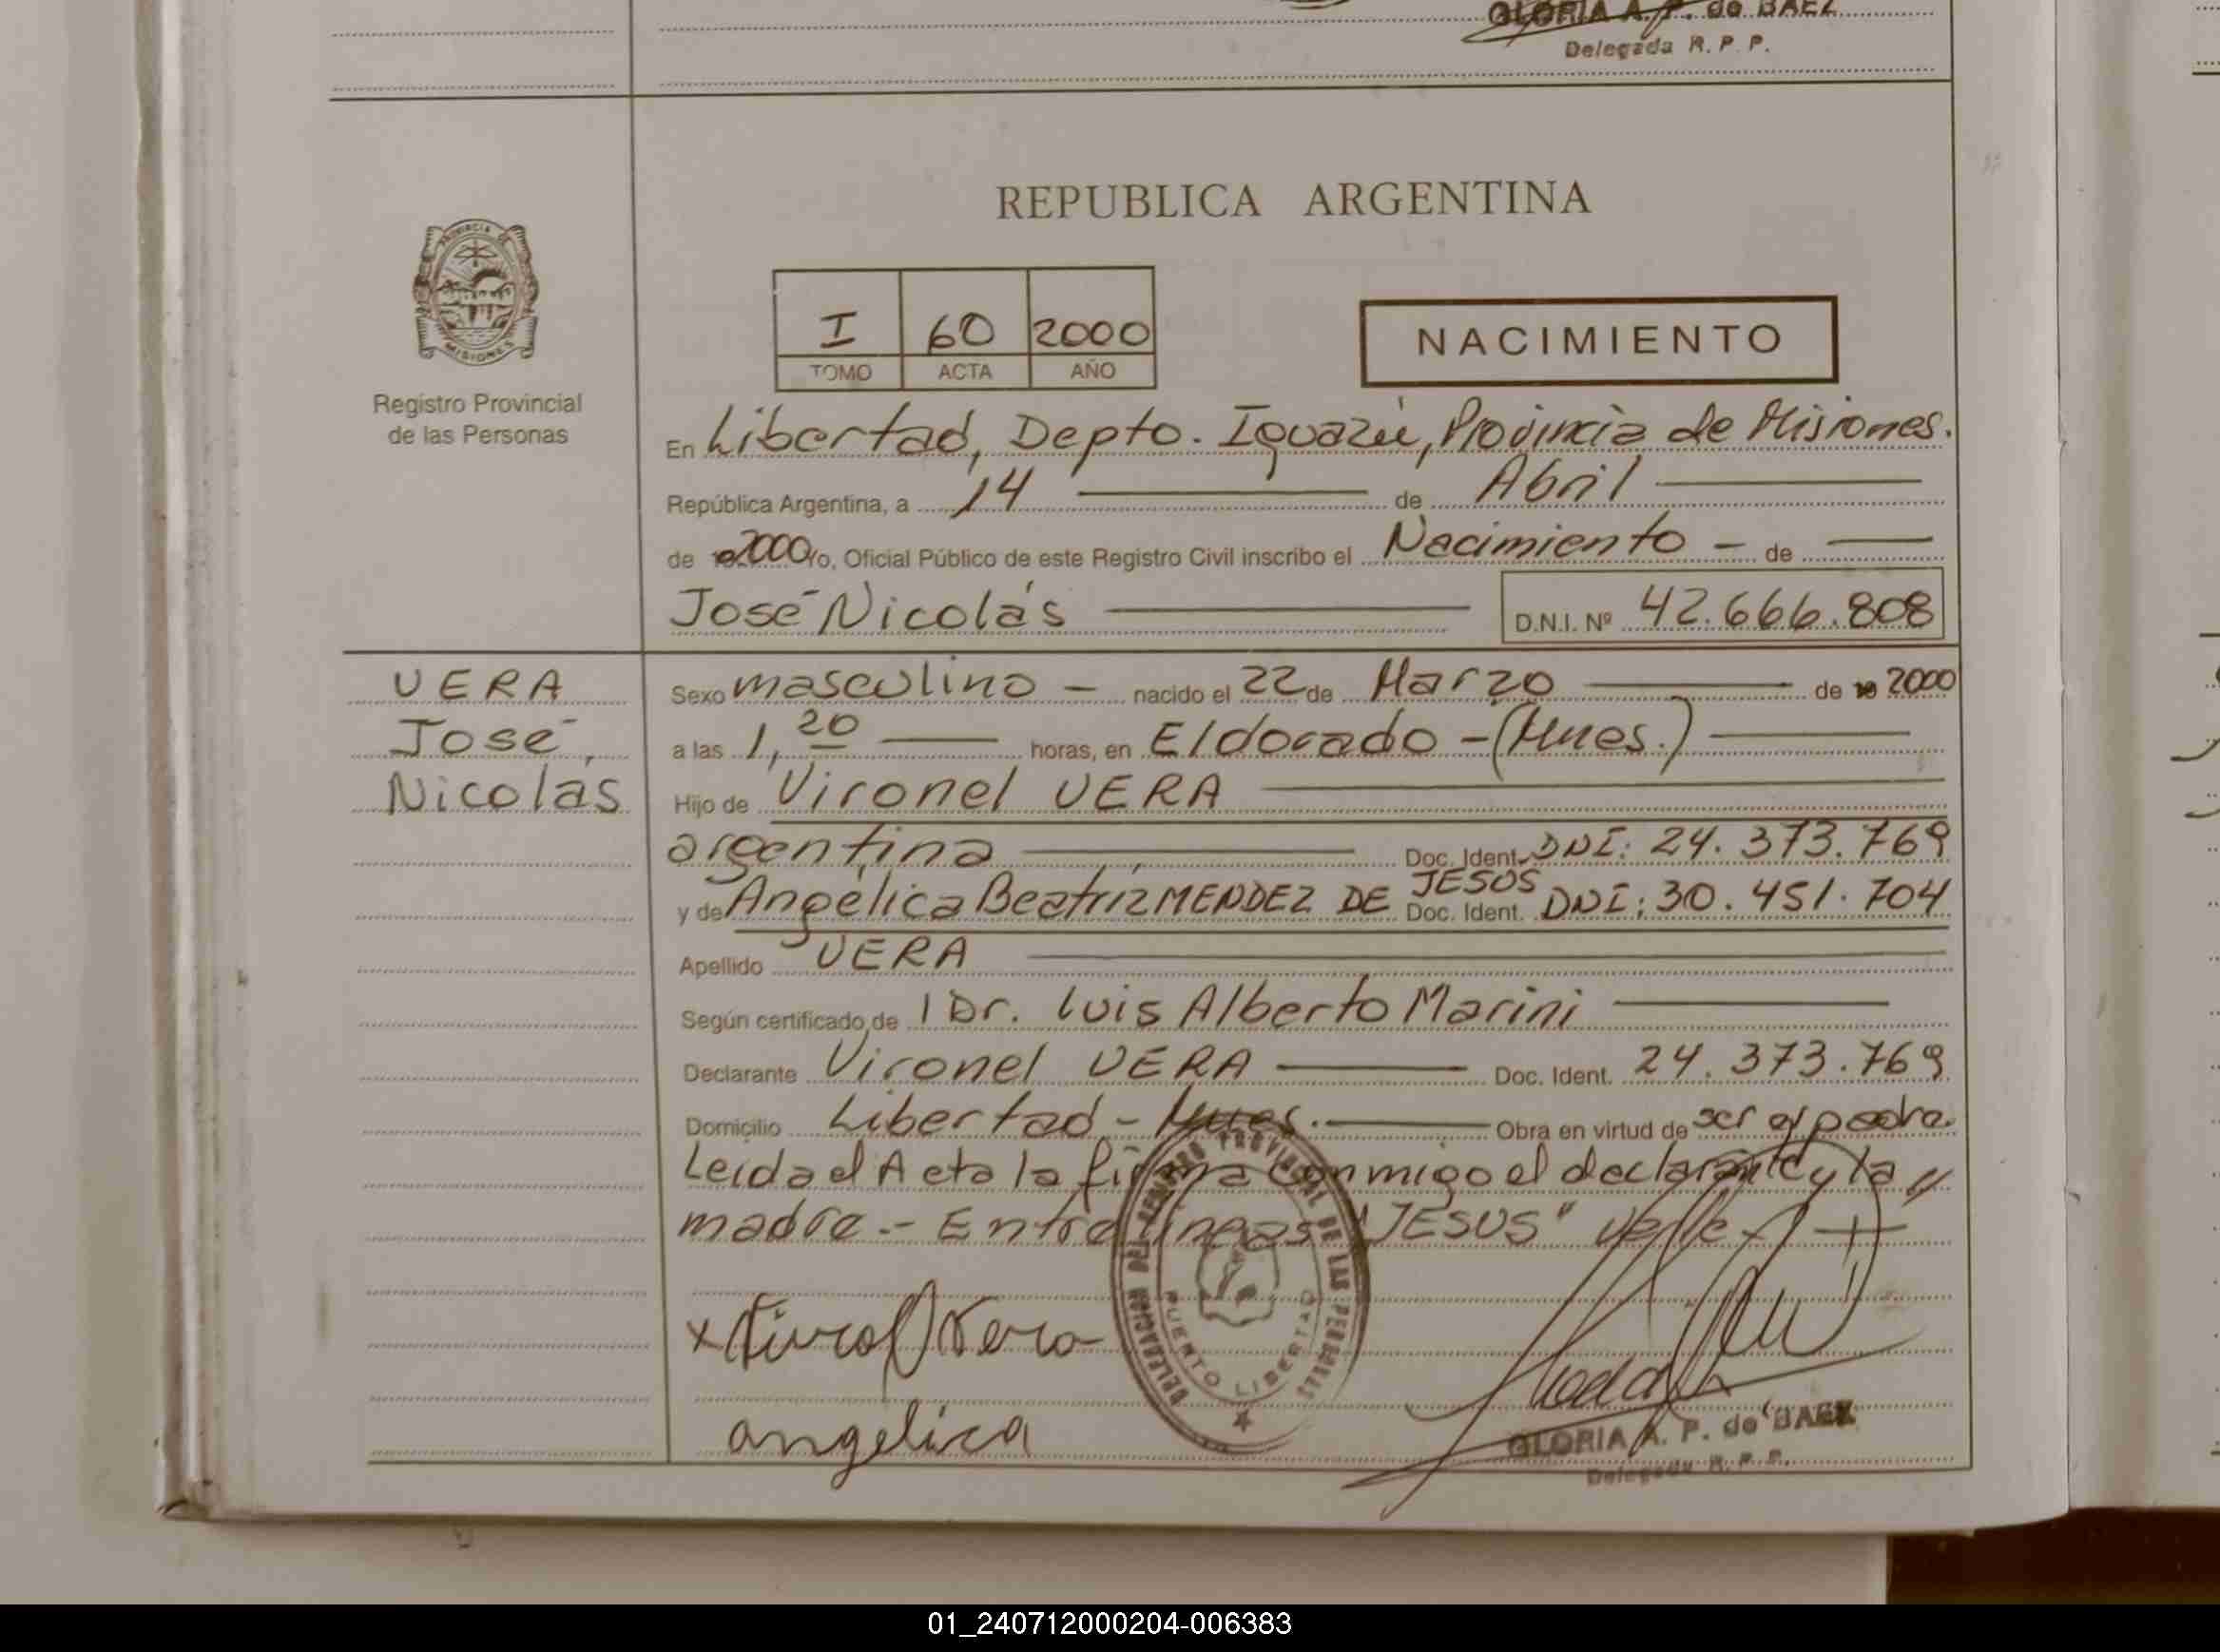 GLORIA A. P. de BAEZ
Delegada R. P. P.
REPUBLICA ARGENTINA
PROVINCIA DE
MISIONES
Registro Provincial
de las Personas
I 60 2000
TOMO ACTA AÑO
NACIMIENTO
En Libertad, Depto. Iguazú, Provincia de Misiones.
República Argentina, a 14 de Abril
de 2000 Yo, Oficial Público de este Registro Civil inscribo el Nacimiento - de
José Nicolás D.N.I. Nº 42.666.808
VERA
José
Nicolás
Sexo masculino - nacido el 22 de Marzo de 19 2000
a las 1,20 horas, en Eldorado - (Mnes.)
Hijo de Vironel VERA
argentina Doc. Ident. DNI: 24.373.769
y de Angélica Beatriz MENDEZ DE JESUS Doc. Ident. DNI: 30.451.704
Apellido VERA
Según certificado de 1 Dr. Luis Alberto Marini
Declarante Vironel VERA Doc. Ident. 24.373.769
Domicilio Libertad - Mnes. Obra en virtud de ser el padre.
Leida el Acta la firma conmigo el declarante y la
madre.- Entre lineas "JESUS" Vale
DELEGACION DEL REGISTRO PROVINCIAL DE LAS PERSONAS
PUERTO LIBERTAD
x Vera
angelica
GLORIA A. P. de BAEZ
Delegada R. P. P.
01_240712000204-006383